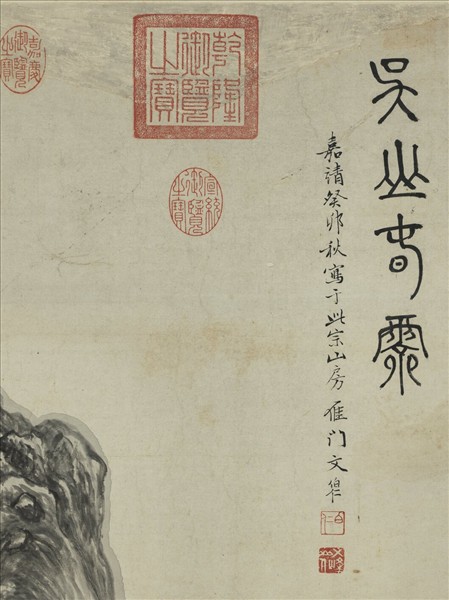 吳山春霽
嘉靖癸卯秋寫于此宗山房雁门文伯仁
乾隆御覽之寶
宣統御覽之寶
嘉慶御覽之寶